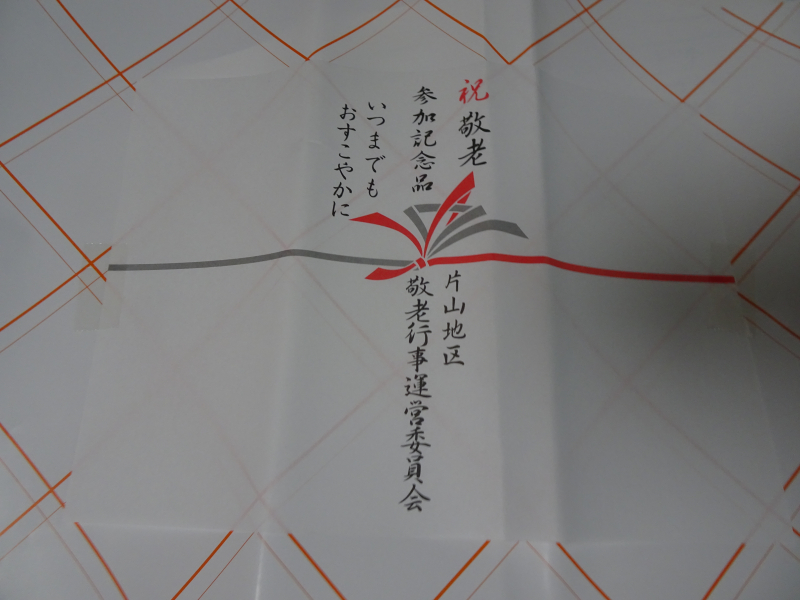 祝敬老
参加記念品
いつまでも
おすこやかに
片山地区
敬老行事運営委員会